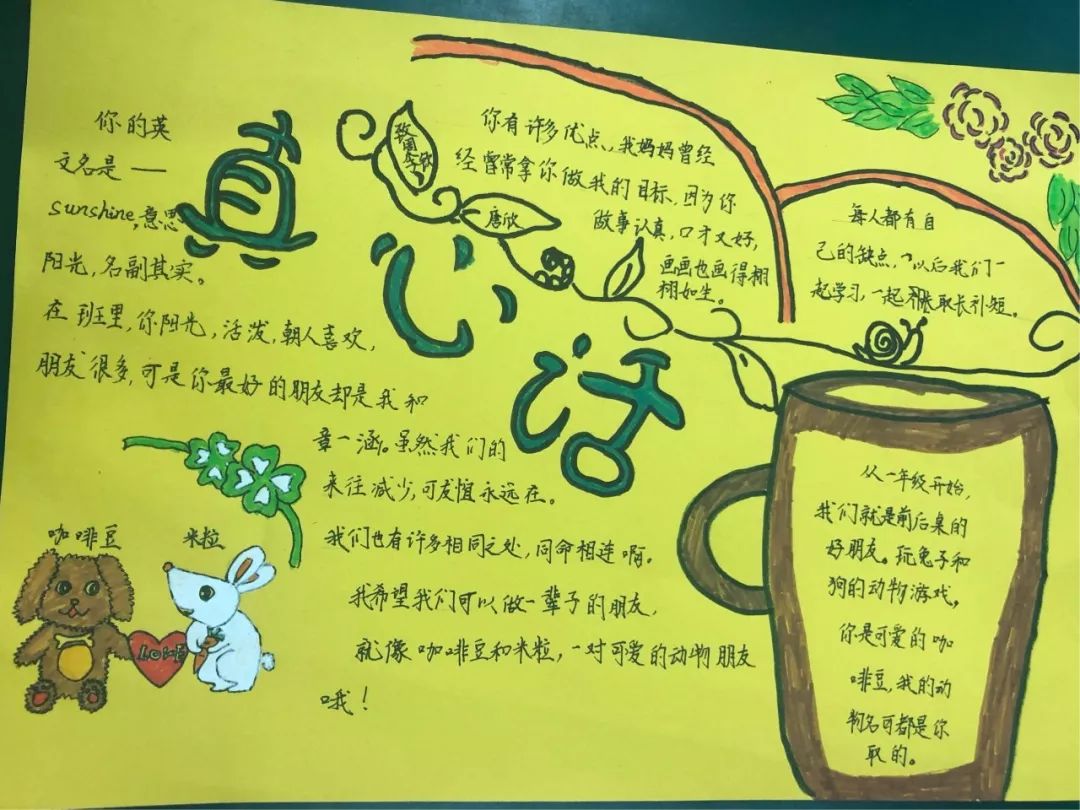 真心话
致
唐欣
你的英
文名是——
sunshine,意思
阳光,名副其实。
在班里,你阳光,活泼,朝人喜欢,
朋友很多,可是你最好的朋友却是我和
章一涵。虽然我们的
来往减少,可友谊永远在。
我们也有许多相同之处,同命相连啊。
我希望我们可以做一辈子的朋友,
就像咖啡豆和米粒,一对可爱的动物朋友
哦!
咖啡豆
米粒
LOVE
你有许多优点,我妈妈曾经
经曾常拿你做我的目标,因为你
做事认真,口才又好,
画画也画得栩
栩如生。
每人都有自
己的缺点,以后我们一
起学习,一起取长补短。
从一年级开始,
我们就是前后桌的
好朋友。玩兔子和
狗的动物游戏,
你是可爱的咖
啡豆,我的动
物名可都是你
取的。